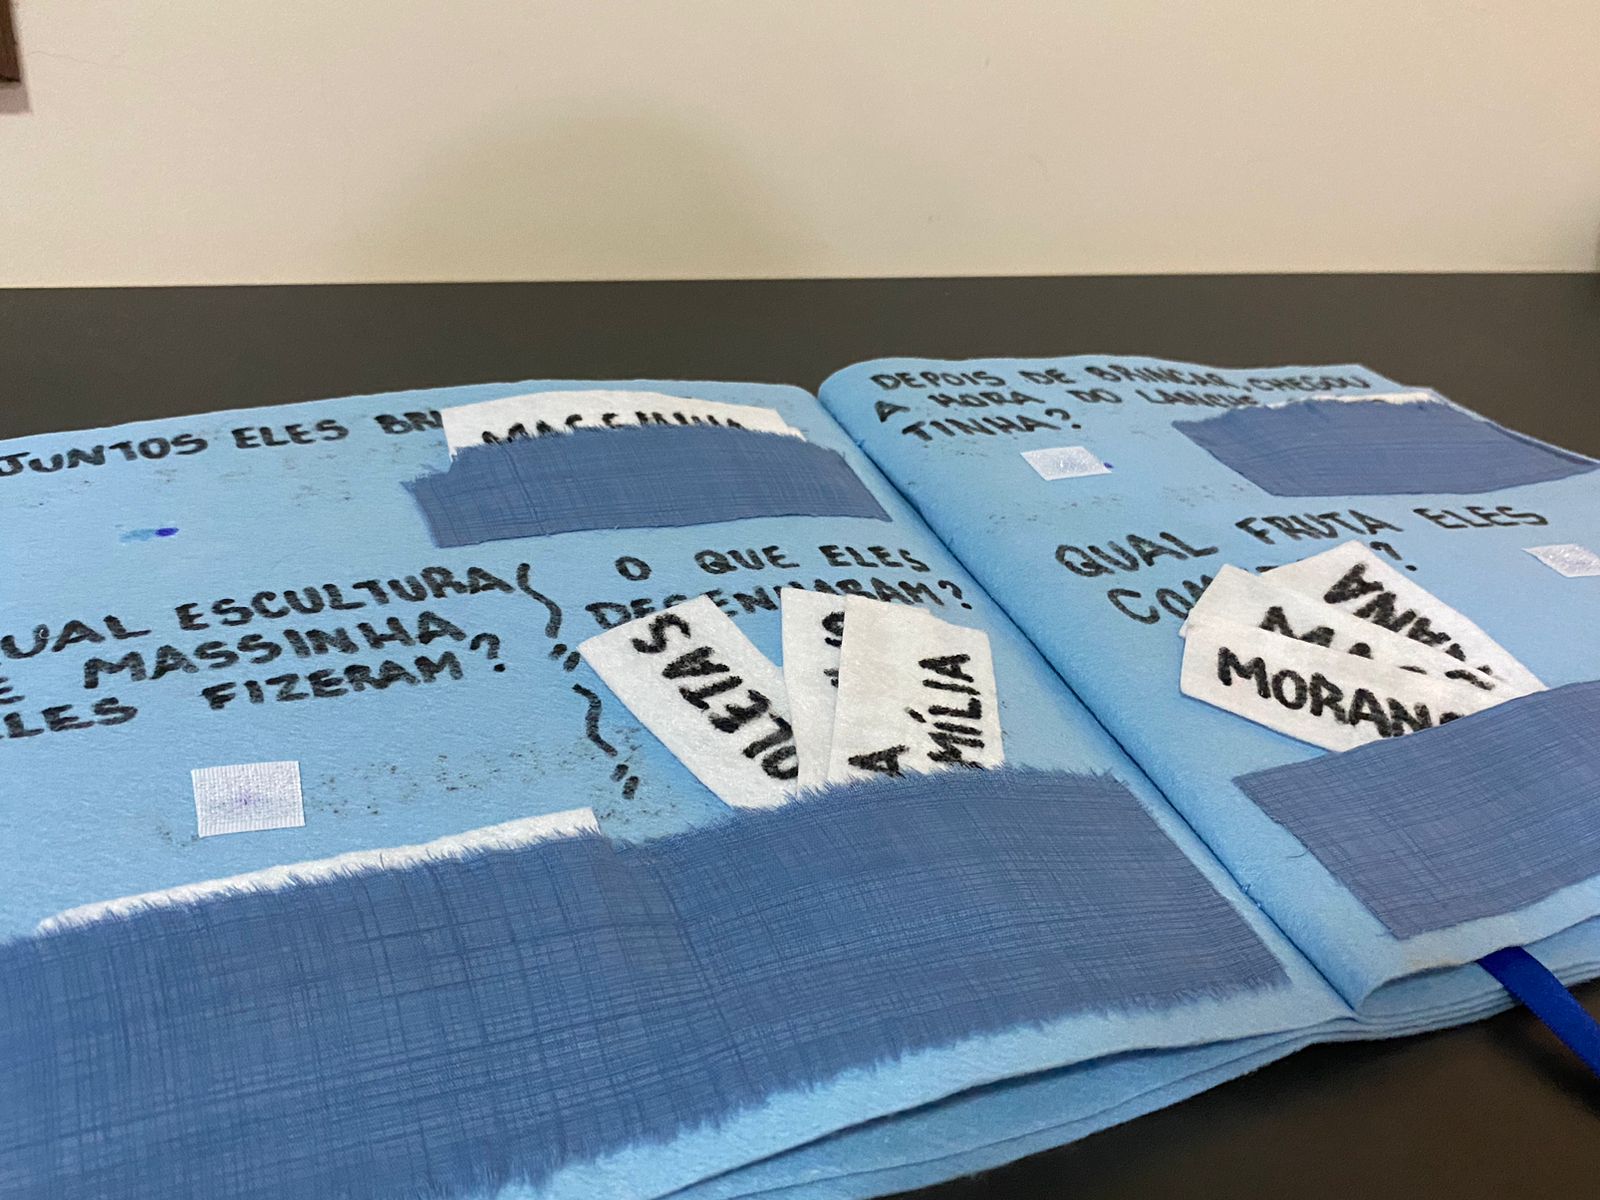 JUNTOS ELES BRI
MASSINHA
QUAL ESCULTURA
DE MASSINHA
ELES FIZERAM?
O QUE ELES
DESENHARAM?
OLETAS
A
MÍLIA
DEPOIS DE BRINCAR, CHEGOU
A HORA DO LANCHE
TINHA?
QUAL FRUTA ELES
COM ?
NANA
MA
MORANG